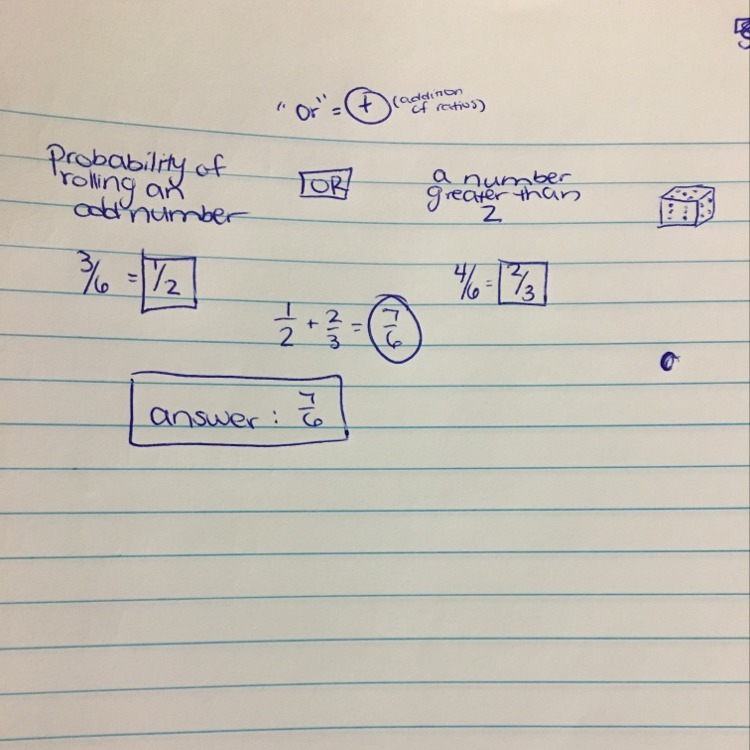 "or" = + (addition
of ratios)
Probability of
rolling an
odd number
OR
a number
greater than
2
3/6 = 1/2
4/6 = 2/3
1/2 + 2/3 = 7/6
answer: 7/6